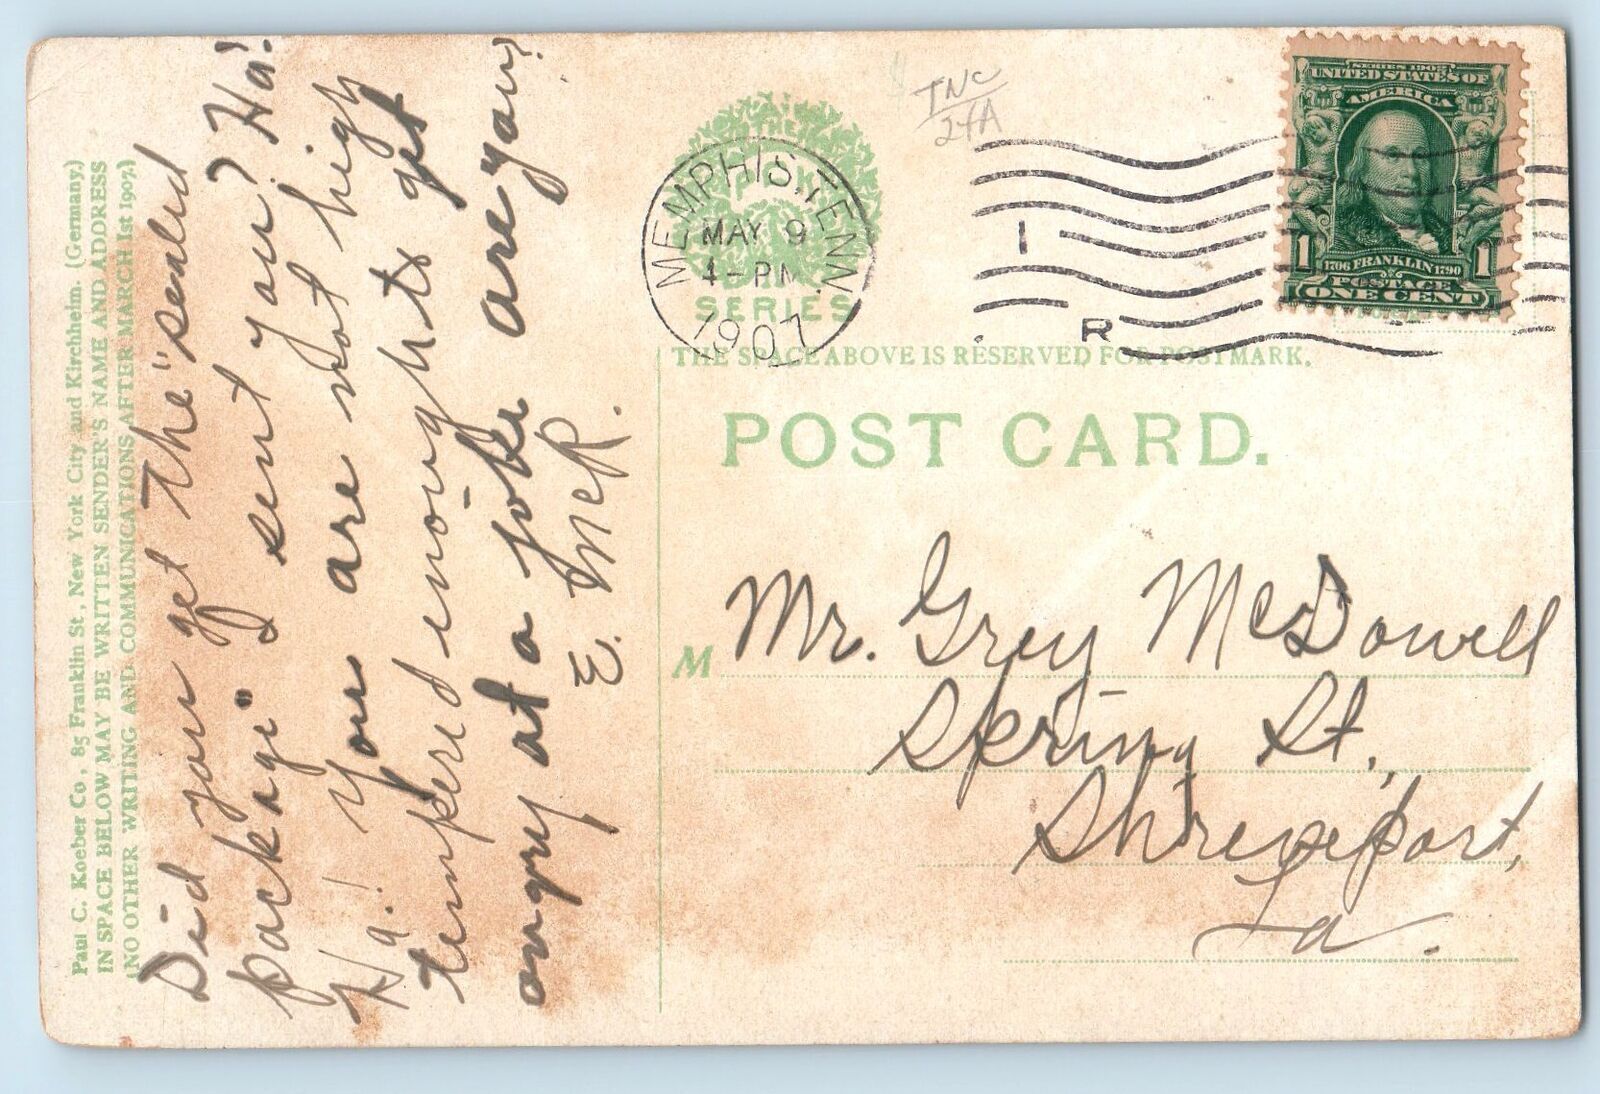 Paul C. Koeber Co, 85 Franklin St, New York City and Kirchheim. (Germany.)
IN SPACE BELOW MAY BE WRITTEN SENDER'S NAME AND ADDRESS
(NO OTHER WRITING AND COMMUNICATIONS AFTER MARCH 1st 1907.)
Did you get the "sealed
packagi" I sent you? Ha!
Ha! You are not high
tempered enough to get
angry at a joke are you?
E. McR.
TNC
24A
IN THE
PINK
SERIES
MEMPHIS, TENN.
MAY 9
4-PM
1907
I
R
SERIES 1902
UNITED STATES OF
AMERICA
1706 FRANKLIN 1790
1 1
POSTAGE
ONE CENT
THE SPACE ABOVE IS RESERVED FOR POSTMARK.
POST CARD.
M Mr. Grey McDowell
Spring St.,
Shreveport,
La.